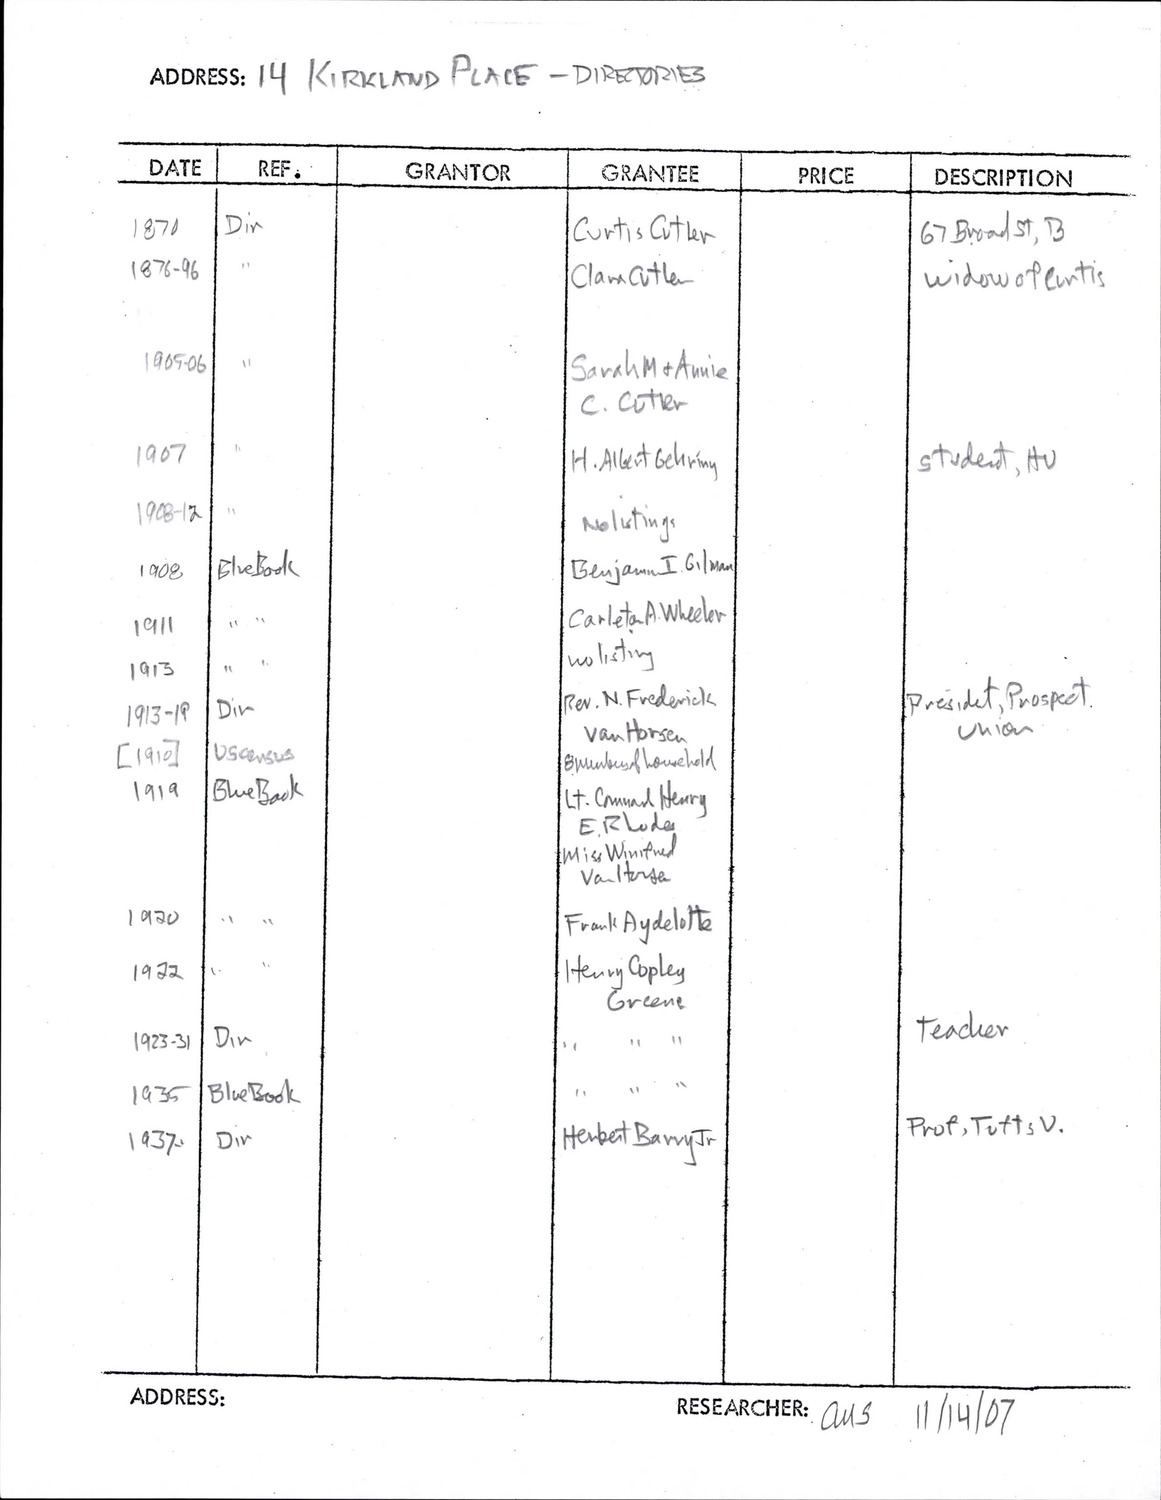 ADDRESS: 14 KIRKLAND PLACE – DIRECTORIES
DATE REF. GRANTOR GRANTEE PRICE DESCRIPTION
1870 Dir Curtis Cutler 67 Broad St, B
1876-96 " Clara Cutler widow of Curtis
1905-06 " Sarah M + Annie
C. Cutler
1907 " H. Albert Gehring student, HU
1908-12 " No listings
1908 Blue Book Benjamin I. Gilman
1911 " " Carleton A. Wheeler
1913 " " no listing
1913-19 Dir Rev. N. Frederick President, Prospect
Van Horsen Union
[1910] US census 8 members of household
1919 Blue Book Lt. Command Henry
E. Rhodes
Miss Winifred
Van Horsen
1920 " " Frank Aydelotte
1922 " " Henry Copley
Greene
1923-31 Dir " " " Teacher
1935 Blue Book " " "
1937- Dir Herbert Barry Jr Prof, Tufts U.
ADDRESS: RESEARCHER: 11/14/07